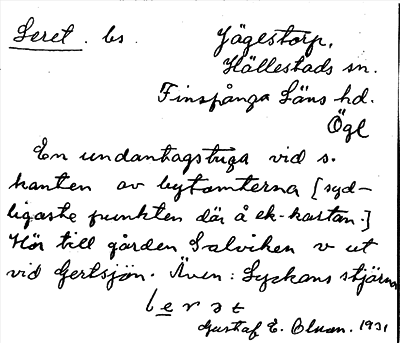 Leret. bs. Jägestorp,
Hällestads sn.
Finspånga Läns hd.
Ögl
En undantagstuga vid s.
kanten av bytomterna [syd-
ligaste punkten där å ek-kartan.]
Hör till gården Salviken v ut
vid Gertsjön. Även: Lyckans stjärna
leret
Gustaf E. Olsson. 1931